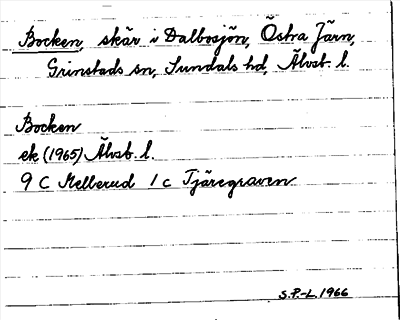 Bocken, skär i Dalbosjön, Östra Järn,
Grinstads sn, Sundals hd, Älvsb. l.
Bocken
ek (1965) Älvsb. l.
9 C Mellerud 1 c Tjäregraven
S.P.-L. 1966